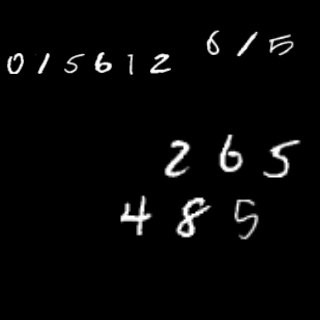 015612
615
265
485